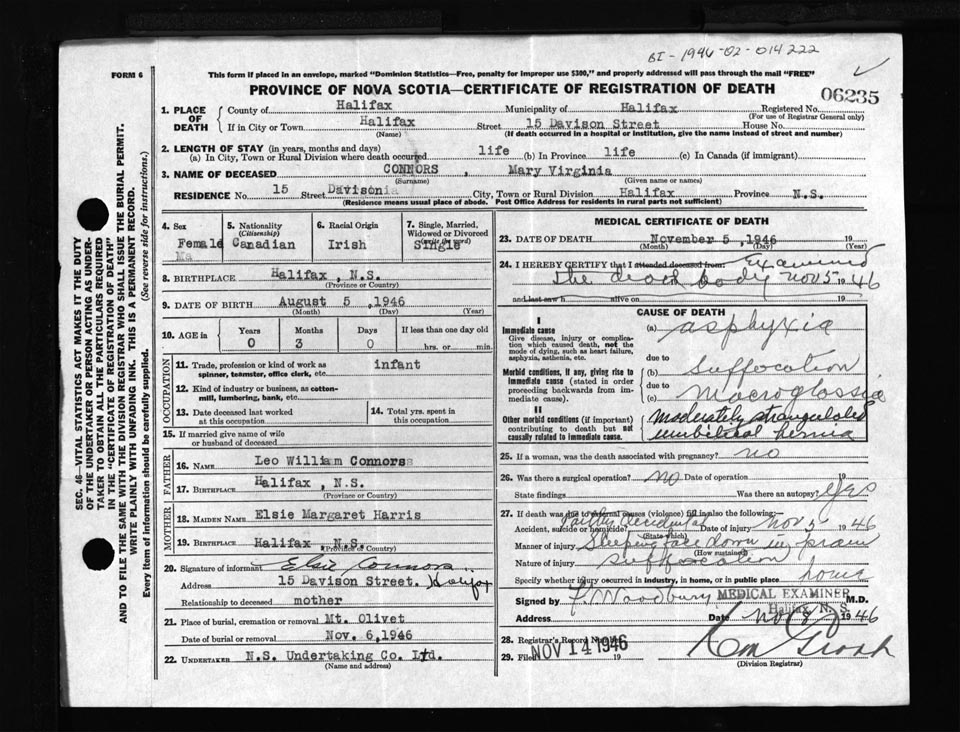 BI-1946-02-014222
FORM 6
This form if placed in an envelope, marked "Dominion Statistics—Free, penalty for improper use $300," and properly addressed will pass through the mail "FREE"
PROVINCE OF NOVA SCOTIA—CERTIFICATE OF REGISTRATION OF DEATH
06235
1. PLACE OF DEATH County of Halifax Municipality of Halifax Registered No.
(For use of Registrar General only)
If in City or Town Halifax Street 15 Davison Street House No.
(Name) (If death occurred in a hospital or institution, give the name instead of street and number)
2. LENGTH OF STAY (in years, months and days)
(a) In City, Town or Rural Division where death occurred life (b) In Province life (c) In Canada (if immigrant)
3. NAME OF DECEASED CONNORS , Mary Virginia
(Surname) (Given name or names)
RESIDENCE No. 15 Street Davison City, Town or Rural Division Halifax Province N.S.
(Residence means usual place of abode. Post Office Address for residents in rural parts not sufficient)
4. Sex 5. Nationality (Citizenship) 6. Racial Origin 7. Single, Married, Widowed or Divorced (write the word)
Female Canadian Irish Single
Ma
8. BIRTHPLACE Halifax, N.S.
(Province or Country)
9. DATE OF BIRTH August 5, 1946
(Month) (Day) (Year)
10. AGE in Years Months Days If less than one day old
0 3 0 hrs. or min.
OCCUPATION
11. Trade, profession or kind of work as spinner, teamster, office clerk, etc. infant
12. Kind of industry or business, as cotton-mill, lumbering, bank, etc.
13. Date deceased last worked at this occupation
14. Total yrs. spent in this occupation
15. If married give name of wife or husband of deceased
FATHER
16. NAME Leo William Connors
17. BIRTHPLACE Halifax, N.S.
(Province or Country)
MOTHER
18. MAIDEN NAME Elsie Margaret Harris
19. BIRTHPLACE Halifax, N.S.
(Province or Country)
20. Signature of informant Elsie Connors
Address 15 Davison Street. Halifax
Relationship to deceased mother
21. Place of burial, cremation or removal Mt. Olivet
Date of burial or removal Nov. 6, 1946
22. UNDERTAKER N.S. Undertaking Co. Ltd.
(Name and address)
MEDICAL CERTIFICATE OF DEATH
23. DATE OF DEATH November 5, 1946 19
(Month) (Day) (Year)
24. I HEREBY CERTIFY that I attended deceased from: Examined
the dead body Nov 5 1946
and last saw h alive on 19
CAUSE OF DEATH
I
Immediate cause
Give disease, injury or complication which caused death, not the mode of dying, such as heart failure, asphyxia, asthenia, etc.
(a) asphyxia
due to
Morbid conditions, if any, giving rise to immediate cause (stated in order proceeding backwards from immediate cause).
(b) Suffocation
due to
(c) Macroglossia
II
Other morbid conditions (if important) contributing to death but not causally related to immediate cause.
Moderately strangulated
umbilical hernia
25. If a woman, was the death associated with pregnancy? no
26. Was there a surgical operation? no Date of operation 19
State findings Was there an autopsy? Yes
27. If death was due to external causes (violence) fill in also the following:—
Accident, suicide or homicide? Accidental Date of injury Nov 5 1946
(State which)
Manner of injury Sleeping face down in pram
(How sustained)
Nature of injury Suffocation
Specify whether injury occurred in industry, in home, or in public place home
Signed by Woodbury MEDICAL EXAMINER M.D.
Halifax, N. S.
Address Date Nov 8 1946
28. Registrar's Record Number
29. Filed NOV 14 1946 19
(Division Registrar)
SEC. 46—VITAL STATISTICS ACT MAKES IT THE DUTY
OF THE UNDERTAKER OR PERSON ACTING AS UNDER-
TAKER TO OBTAIN ALL THE PARTICULARS REQUIRED
IN THE "CERTIFICATE OF REGISTRATION OF DEATH"
AND TO FILE THE SAME WITH THE DIVISION REGISTRAR WHO SHALL ISSUE THE BURIAL PERMIT.
WRITE PLAINLY WITH UNFADING INK. THIS IS A PERMANENT RECORD.
Every item of information should be carefully supplied. (See reverse side for instructions.)